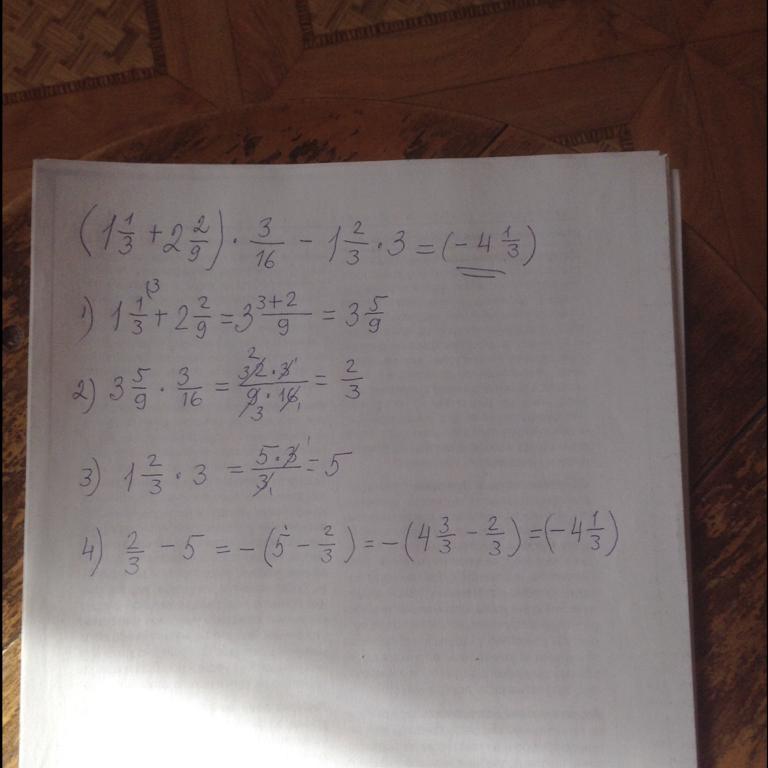 (1 1/3 + 2 2/9) · 3/16 − 1 2/3 · 3 = (− 4 1/3)
1) 1 1/3 (3 + 2 2/9 = 3 3+2/9 = 3 5/9
2) 3 5/9 · 3/16 = 32 2 · 3 1/9 3 · 16 1 = 2/3
3) 1 2/3 · 3 = 5 · 3 1/3 1 = 5
4) 2/3 − 5 = − (5 − 2/3) = − (4 3/3 − 2/3) = (− 4 1/3)